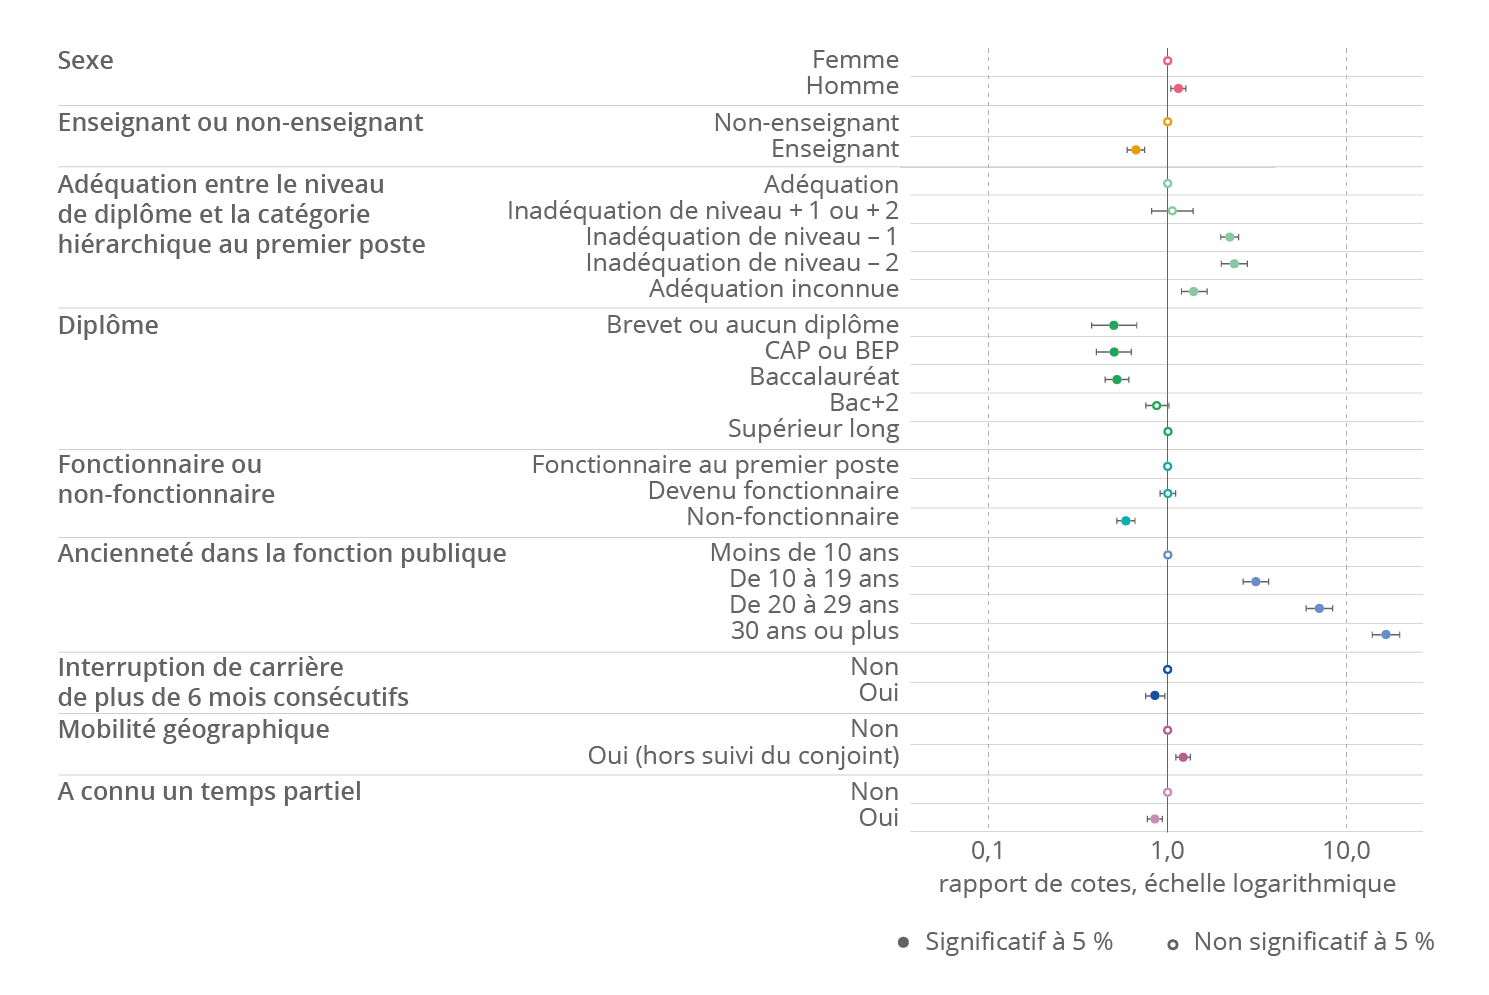 Sexe
Femme
Homme
Enseignant ou non-enseignant
Non-enseignant
Enseignant
Adéquation entre le niveau
de diplôme et la catégorie
hiérarchique au premier poste
Adéquation
Inadéquation de niveau + 1 ou + 2
Inadéquation de niveau – 1
Inadéquation de niveau – 2
Adéquation inconnue
Diplôme
Brevet ou aucun diplôme
CAP ou BEP
Baccalauréat
Bac+2
Supérieur long
Fonctionnaire ou
non-fonctionnaire
Fonctionnaire au premier poste
Devenu fonctionnaire
Non-fonctionnaire
Ancienneté dans la fonction publique
Moins de 10 ans
De 10 à 19 ans
De 20 à 29 ans
30 ans ou plus
Interruption de carrière
de plus de 6 mois consécutifs
Non
Oui
Mobilité géographique
Non
Oui (hors suivi du conjoint)
A connu un temps partiel
Non
Oui
0,1 1,0 10,0
rapport de cotes, échelle logarithmique
Significatif à 5 % Non significatif à 5 %